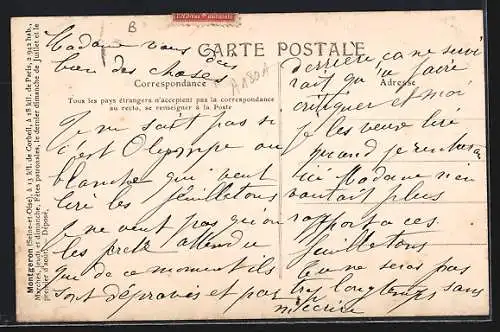 B
CARTE POSTALE
Madame vous dois
bien des choses
A180A
Correspondance
Adresse
Tous les pays étrangers n'acceptent pas la correspondance
au recto, se renseigner à la Poste
Je ne sait pas si
c'est Olympe ou
blanche qui veut
liré les feuilletons
Je ne veut pas qu'on
les prete attendu
que de ce moment ils
sont dépravés et pas
derrière ça ne servi
rait qu'a faire
critiquer et moi
je les veux liré
quand je rentrerai
ici Madame n'en
voutait plus
rapport a ces
feuilletons
ne seras pas
longtemps sans
m'écrire
Montgeron (Seine-et-Oise), à 13 kil. de Corbeil, à 18 kil. de Paris, 2 942 hab.
Marchés jeudi et dimanche. Fêtes patronales, le dernier dimanche de Juillet et le
premier d'août. Déposé.